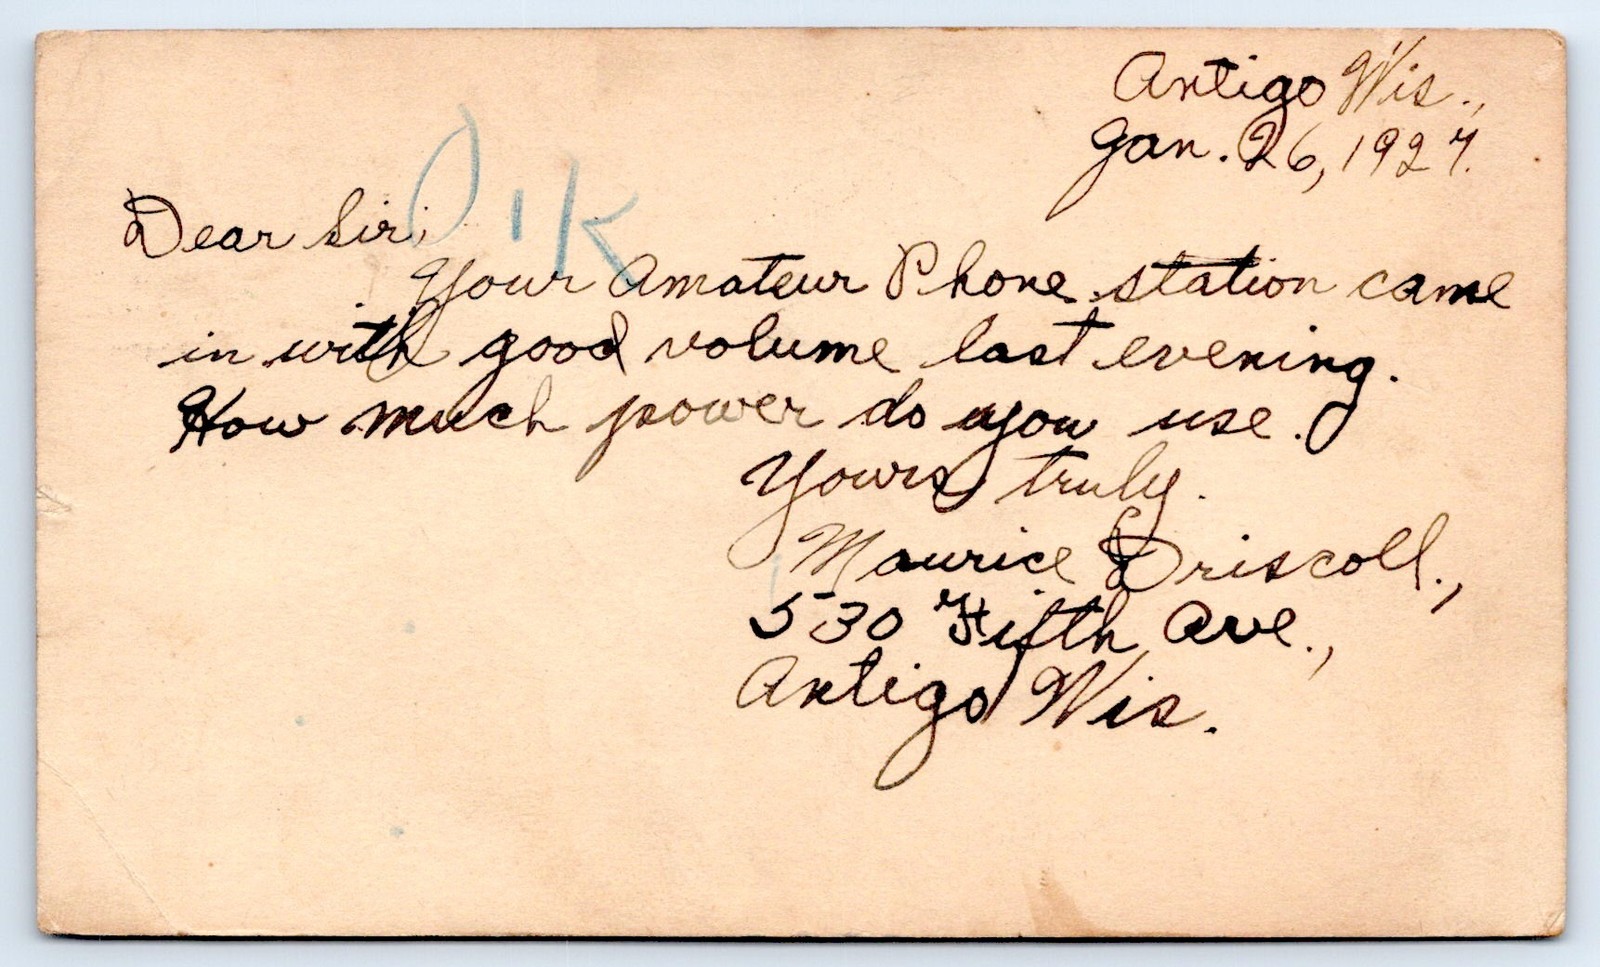 Antigo Wis.,
Jan. 26, 1927.
Dear Sir;
O.K
Your Amateur Phone station came
in with good volume last evening.
How much power do you use.
Yours truly.
Maurice Driscoll.,
530 Fifth Ave.,
Antigo Wis.